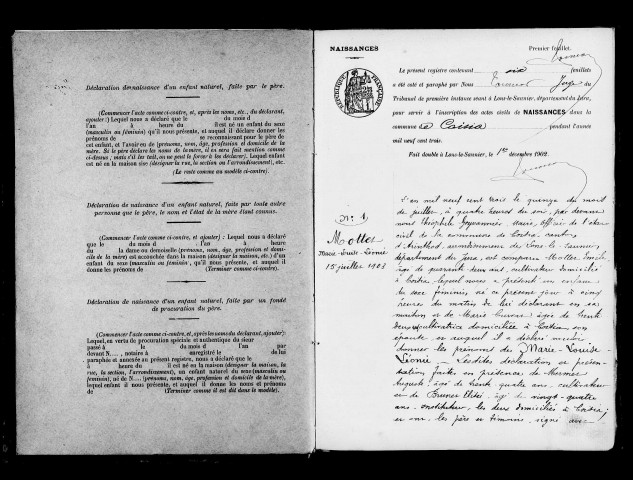 Déclaration de naissance d'un enfant naturel, faite par le père.
(Commencer l'acte comme ci-contre, et, après les noms, etc., du déclarant,
ajouter :) Lequel nous a déclaré que le du mois d
l'an à heure du Il est né un enfant du sexe
(masculin ou féminin) qu'il nous présente, et auquel il donne les prénoms
de se reconnaissant pour le père du dit
enfant, et l'avoir eu de (prénoms, nom, âge, profession et domicile de la
mère. Si le père déclare les noms de la mère, il en sera fait mention comme
ci-dessus ; mais s'il les tait, on ne peut le forcer à les déclarer). Lequel enfant
est né en la maison rise (désigner la rue, la section ou l'arrondissement), etc.
(Le reste comme au modèle ci-contre).
Déclaration de naissance d'un enfant naturel, faite par toute autre
personne que le père, le nom et l'état de la mère étant connus.
(Commencer l'acte comme ci-contre, et ajouter) : Lequel nous a déclaré
que le du mois d l'an à heure
du la dame ou demoiselle (prénoms, nom, âge, profession et domi-
cile de la mère) est accouchée dans la maison (désigner la maison, etc.) d'un
enfant du sexe (masculin ou féminin), qu'il nous présente, et auquel il donne
les prénoms de (Terminer comme ci-contre).
Déclaration de naissance d'un enfant naturel, faite par un fondé
de procuration du père.
(Commencer l'acte comme ci-contre, et, après les noms du déclarant, ajouter) :
Lequel, en vertu de procuration spéciale et authentique du sieur
passé à le du mois d l'an par
devant N...., notaire à enregistré le de lui
paraphée et annexée au présent registre, nous a déclaré que le
à heure du il est né en la maison (désigner la maison, la
rue, la section, l'arrondissement), un enfant naturel du sexe (masculin ou
féminin), né de N.... (prénoms, nom, âge, profession et domicile de la mère),
lequel enfant il nous a présenté, et auquel il donne les prénoms et nom
de (Terminer comme il est dit dans le modèle).
NAISSANCES Premier feuillet.
Le présent registre contenant six feuillets
a été coté et paraphé par Nous Juge au
Tribunal de première instance séant à Lons-le-Saunier, département du Jura,
pour servir à l'inscription des actes civils de NAISSANCES dans la
commune de Coisia pendant l'année
mil neuf cent trois.
Fait double à Lons-le-Saunier, le 1er décembre 1902.
RÉPUBLIQUE FRANÇAISE
N° 1
Mottet
Marie-Louise-Léonie
15 juillet 1903
L'an mil neuf cent trois le quinze du mois
de juillet, à quatre heures du soir, par devant
nous Théophile maire, officier de l'état
civil de la commune de Coisia canton
d'Arinthod, arrondissement de Lons-le-Saunier,
département du Jura, est comparu Mottet Emile
âgé de quarante deux ans, cultivateur domicilié
à Coisia, lequel nous a présenté un enfant
du sexe féminin, né ce présent jour à cinq
heures du matin de lui déclarant en sa
maison et de Marie âgée de trente
deux cultivatrice domiciliée à Coisia son
épouse et auquel il a déclaré vouloir
donner les prénoms de Marie-Louise-
Léonie. Lesdites déclaration et présen-
tation faites en présence de Mermet
Auguste âgé de trente quatre ans cultivateur
et de âgé de vingt-quatre
ans instituteur, les deux domiciliés à Coisia,
et ont les père et témoins, signé avec